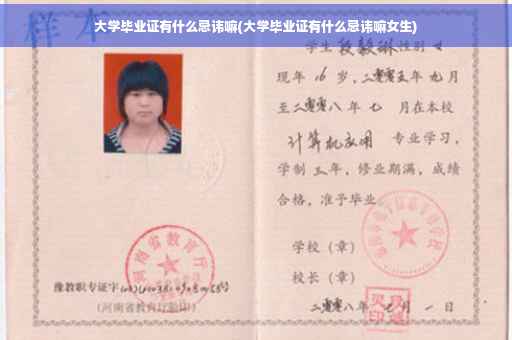 大学毕业证有什么忌讳嘛(大学毕业证有什么忌讳嘛女生)
样本
学生段毅琳性别女
现年16岁，二零零五年九月
至二零零八年七月在本校
计算机应用 专业学习，
学制三年，修业期满，成绩
合格，准予毕业
学校（章）
校长（章）
二零零八年七月一日
河南省教育厅
豫教职专证字
(河南省教育厅验印)